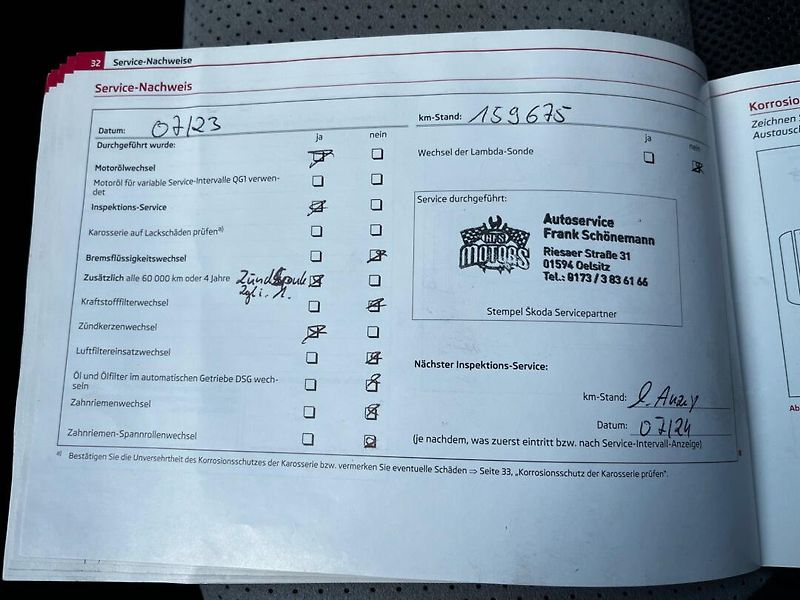 32 Service-Nachweise
Service-Nachweis
Datum: 07/23
km-Stand: 159675
Durchgeführt wurde:
ja nein
Motorölwechsel
Motoröl für variable Service-Intervalle QG1 verwen-
det
Inspektions-Service
Karosserie auf Lackschäden prüfen a)
Bremsflüssigkeitswechsel
Zusätzlich alle 60 000 km oder 4 Jahre
Kraftstofffilterwechsel
Zündkerzenwechsel
Luftfiltereinsatzwechsel
Öl und Ölfilter im automatischen Getriebe DSG wech-
seln
Zahnriemenwechsel
Zahnriemen-Spannrollenwechsel
ja nein
Wechsel der Lambda-Sonde
Service durchgeführt:
MOTORS
Autoservice
Frank Schönemann
Riesaer Straße 31
01594 Oelsitz
Tel.: 0173 / 3 83 61 66
Stempel Škoda Servicepartner
Nächster Inspektions-Service:
km-Stand: l. Anzeig
Datum: 07/24
(je nachdem, was zuerst eintritt bzw. nach Service-Intervall-Anzeige)
a) Bestätigen Sie die Unversehrtheit des Korrosionsschutzes der Karosserie bzw. vermerken Sie eventuelle Schäden ⇒ Seite 33, „Korrosionsschutz der Karosserie prüfen".
Korrosio
Zeichnen
Austausch